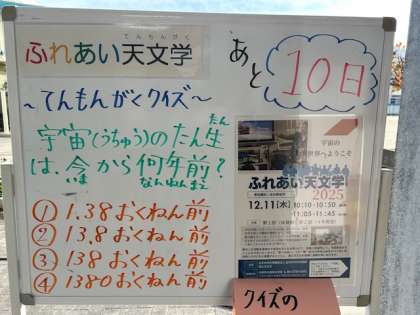 てんもんがく
ふれあい天文学
あと
10日
~てんもんがくクイズ~
宇宙(うちゅう)のたん生
たん
は、今から何年前?
いま
なんねんまえ
① 1.38おくねん前
② 13.8おくねん前
③ 138おくねん前
④ 1380おくねん前
宇宙の
世界へようこそ
ふれあい天文学
2025
12.11(木)
10:10-10:50
11:05-11:45
クイズの